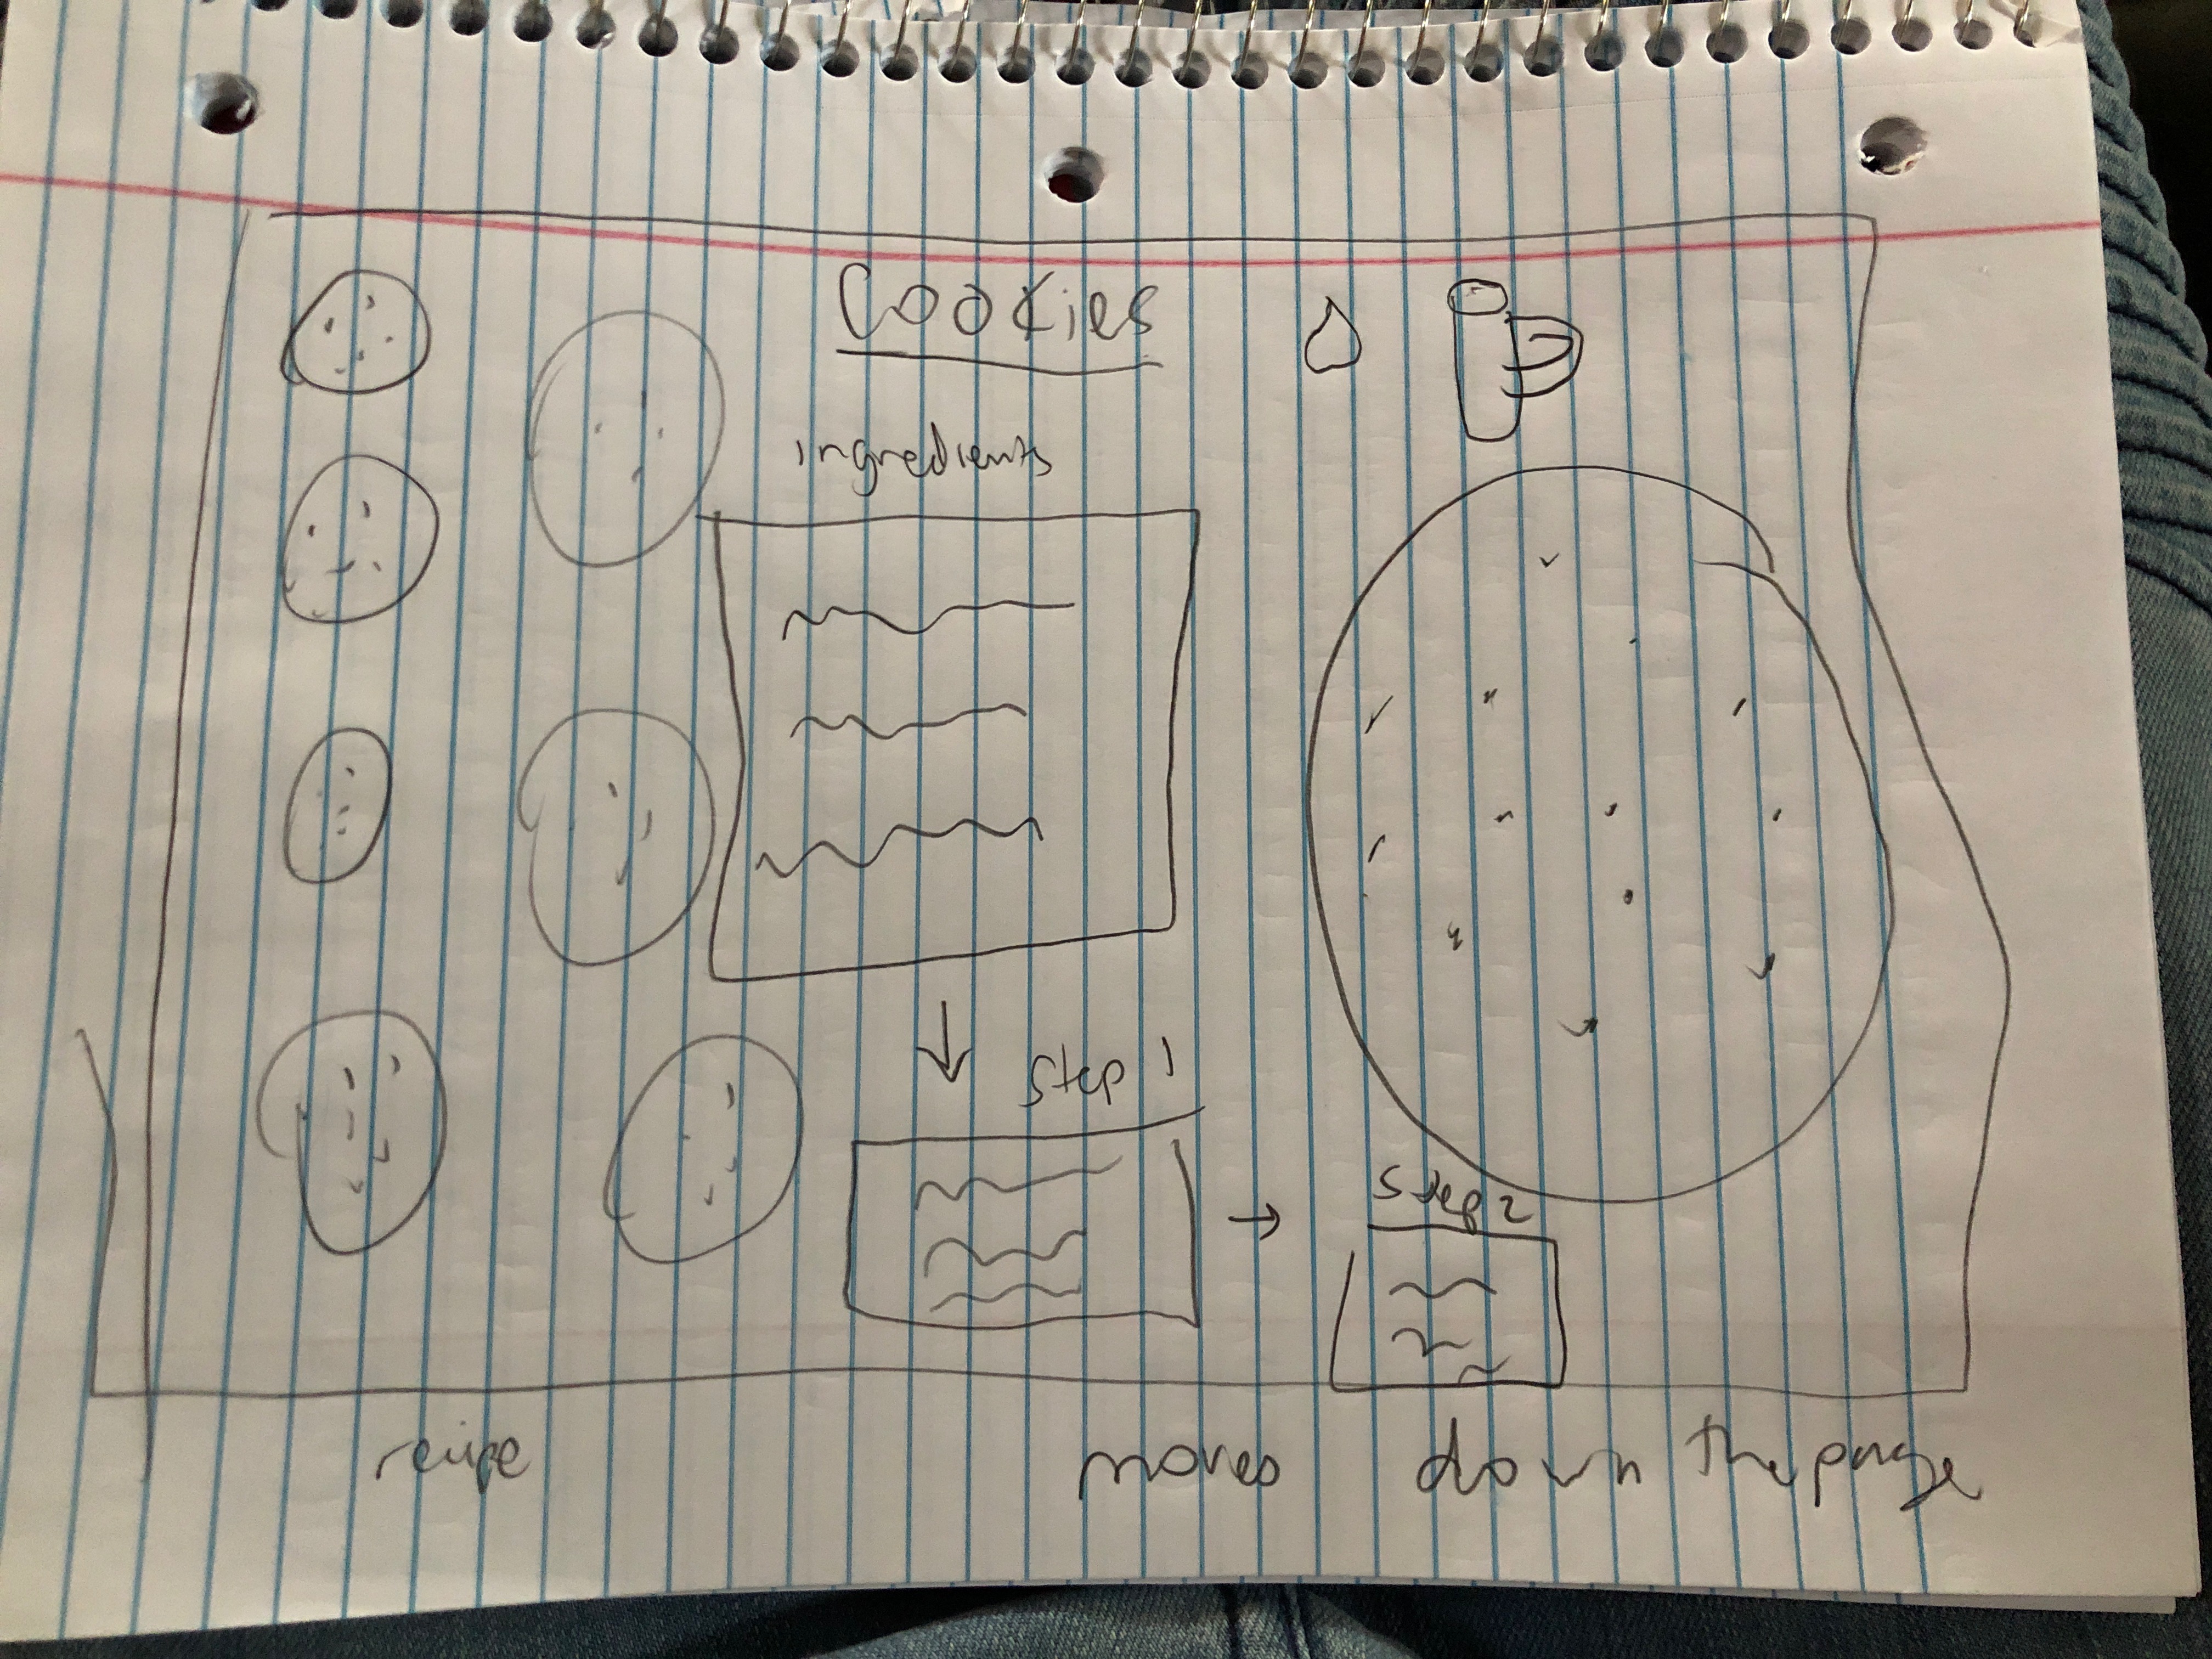 Cookies
ingredients
Step 1
Step 2
recipe moves down the page